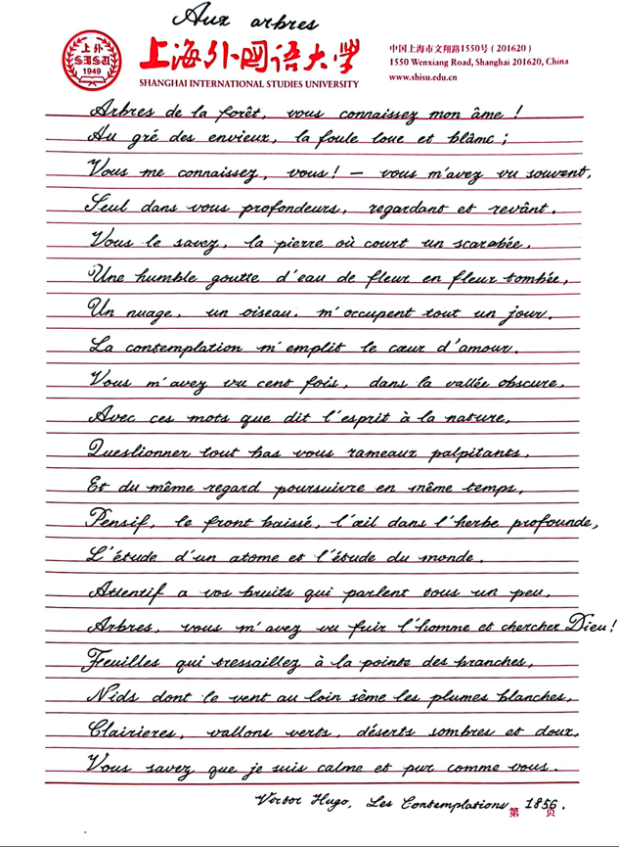 Aux arbres
上外
SISU
1949
上海外国语大学
SHANGHAI INTERNATIONAL STUDIES UNIVERSITY
中国上海市文翔路1550号（201620）
1550 Wenxiang Road, Shanghai 201620, China
www.shisu.edu.cn
Arbres de la forêt, vous connaissez mon âme !
Au gré des envieux, la foule loue et blâme ;
Vous me connaissez, vous ! — vous m'avez vu souvent,
Seul dans vous profondeurs, regardant et revânt.
Vous le savez, la pierre où court un scarabée,
Une humble goutte d'eau de fleur en fleur tombée,
Un nuage, un oiseau, m'occupent tout un jour.
La contemplation m'emplit le cœur d'amour.
Vous m'avez vu cent fois, dans la vallée obscure,
Avec ces mots que dit l'esprit à la nature,
Questionner tout bas vous rameaux palpitants,
Et du même regard poursuivre en même temps,
Pensif, le front baissé, l'œil dans l'herbe profounde,
L'étude d'un atome et l'étude du monde.
Attentif a vos bruits qui parlent tous un peu,
Arbres, vous m'avez vu fuir l'homme et chercher Dieu !
Feuilles qui tressaillez à la pointe des branches,
Nids dont le vent au loin sème les plumes blanches,
Clairieres, vallons verts, déserts sombres et doux,
Vous savez que je suis calme et pur comme vous.
Victor Hugo, Les Contemplations, 1856.
第 页